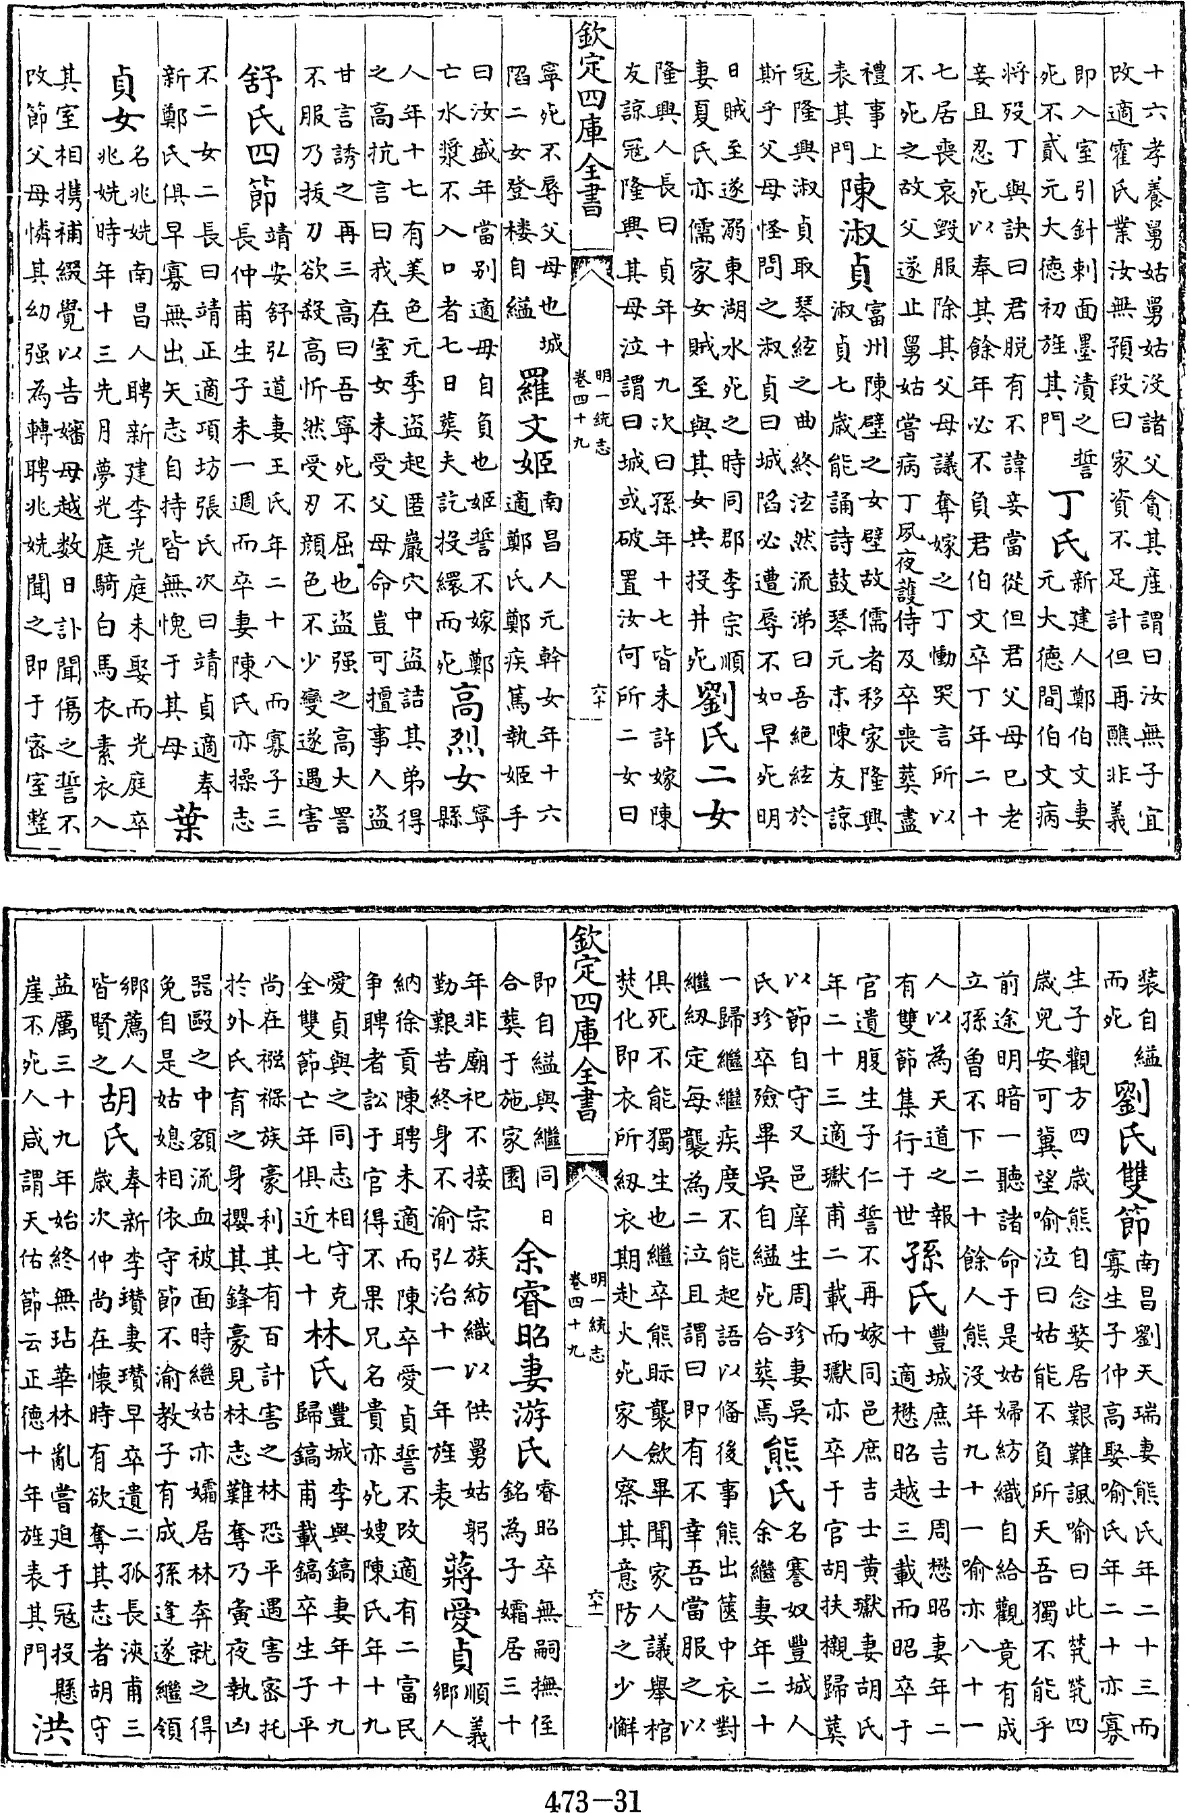 十六孝養舅姑舅姑沒諸父貪其産謂曰汝無子宜
改適霍氏業汝無預段曰家資不足計但再醮非義
即入室引針刺面墨漬之誓
死不貳元大德初旌其門
丁氏
新建人鄭伯文妻
元大德間伯文病
將歿丁與訣曰君脫有不諱妾當從但君父母已老
妾且忍死以奉其餘年必不負君伯文卒丁年二十
七居喪哀毀服除其父母議奪嫁之丁慟哭言所以
不死之故父遂止舅姑嘗病丁夙夜護侍及卒喪葬盡
禮事上
表其門
陳淑貞
富州陳璧之女璧故儒者移家隆興
淑貞七歲能誦詩鼓琴元末陳友諒
冦隆興淑貞取琴絃之曲終泫然流涕曰吾絕絃於
斯乎父母怪問之淑貞曰城陷必遭辱不如早死明
日賊至遂溺東湖水死之時同郡李宗順
妻夏氏亦儒家女賊至與其女共投井死
劉氏二女
隆興人長曰貞年十九次曰孫年十七皆未許嫁陳
友諒冦隆興其母泣謂曰城或破置汝何所二女曰
欽定四庫全書
明一統志
卷四十九
六十
寧死不辱父母也城
陷二女登樓自縊
羅文姬
南昌人元幹女年十六
適鄭氏鄭疾篤執姬手
曰汝盛年當别適毋自負也姬誓不嫁鄭
亡水漿不入口者七日葬夫訖投繯而死
高烈女
寧
縣
人年十七有美色元季盜起匿巖穴中盜詰其弟得
之高抗言曰我在室女未受父母命豈可擅事人盜
甘言誘之再三高曰吾寧死不屈也盜强之高大詈
不服乃拔刀欲殺高忻然受刃顔色不少變遂遇害
舒氏四節
靖安舒弘道妻王氏年二十八而寡子三
長仲甫生子未一週而卒妻陳氏亦操志
不二女二長曰靖正適項坊張氏次曰靖貞適奉
新鄭氏俱早寡無出矢志自持皆無愧于其母
葉
貞女
名兆姺南昌人聘新建李光庭未娶而光庭卒
兆姺時年十三先月夢光庭騎白馬衣素衣入
其室相携補綴覺以告嬸母越數日訃聞傷之誓不
改節父母憐其幼强為轉聘兆姺聞之即于密室整
裝自縊
而死
劉氏雙節
南昌劉天瑞妻熊氏年二十三而
寡生子仲高娶喻氏年二十亦寡
生子觀方四歲熊自念婺居艱難諷喻曰此煢煢四
歲兒安可冀望喻泣曰姑能不負所天吾獨不能乎
前途明暗一聽諸命于是姑婦紡織自給觀竟有成
立孫曾不下二十餘人熊沒年九十一喻亦八十一
人以為天道之報
有雙節集行于世
孫氏
豐城庶吉士周懋昭妻年二
十適懋昭越三載而昭卒于
官遺腹生子仁誓不再嫁同邑庶吉士黃獻妻胡氏
年二十三適獻甫二載而獻亦卒于官胡扶櫬歸葬
以節自守又邑庠生周珍妻吳
氏珍卒殮畢吳自縊死合葬焉
熊氏
名謇奴豐城人
余繼妻年二十
一歸繼繼疾度不能起語以脩後事熊出篋中衣對
繼紉定每襲為二泣且謂曰即有不幸吾當服之以
俱死不能獨生也繼卒熊眎襲斂畢聞家人議舉棺
焚化即衣所紉衣期赴火死家人察其意防之少懈
欽定四庫全書
明一統志
卷四十九
六十一
即自縊與繼同日
合葬于施家園
余睿昭妻游氏
睿昭卒無嗣撫侄
銘為子孀居三十
年非廟祀不接宗族紡織以供舅姑躬
勤艱苦終身不渝弘治十一年旌表
蔣愛貞
順義
鄉人
納徐貢陳聘未適而陳卒愛貞誓不改適有二富民
争聘者訟于官得不果兄名貴亦死嫂陳氏年十九
愛貞與之同志相守克
全雙節亡年俱近七十
林氏
豐城李與鎬妻年十九
歸鎬甫載鎬卒生子平
尚在襁褓族豪利其有百計害之林恐平遇害密托
於外氏育之身攖其鋒豪見林志難奪乃夤夜執凶
器毆之中額流血被面時繼姑亦孀居林奔就之得
免自是姑媳相依守節不渝教子有成孫逢遂繼領
鄉薦人
皆賢之
胡氏
奉新李瓚妻瓚早卒遺二孤長浹甫三
歲次仲尚在懷時有欲奪其志者胡守
益厲三十九年始終無玷華林亂嘗迫于冦投懸
崖不死人咸謂天佑節云正德十年旌表其門
洪
473-31